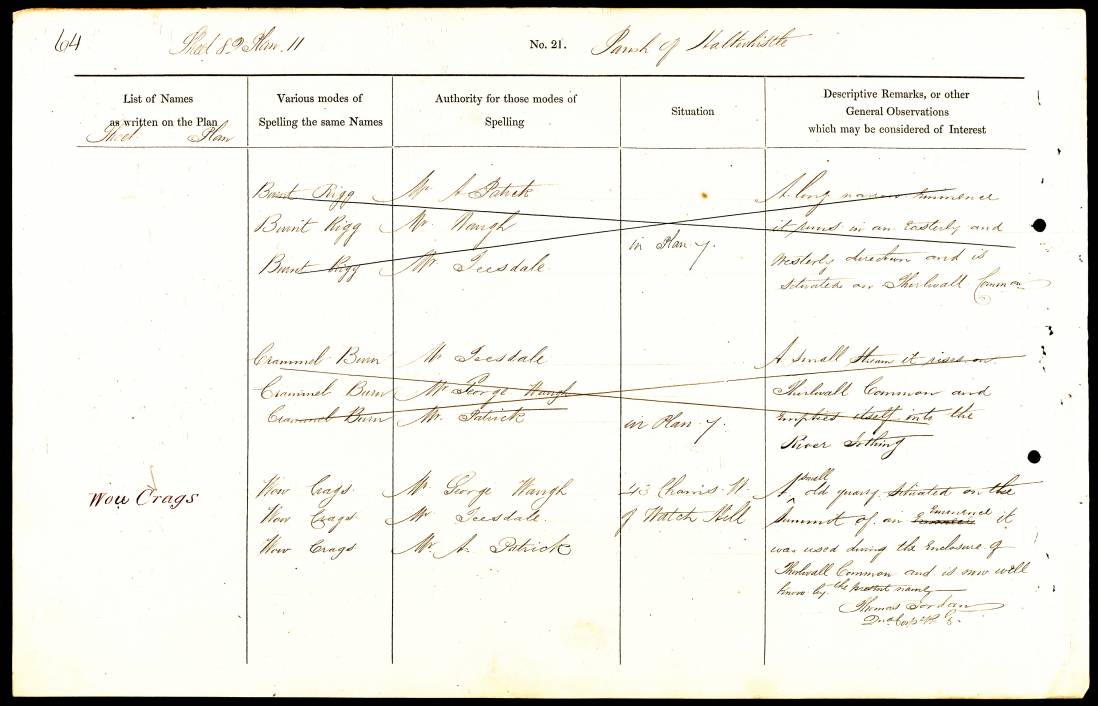 64
Sheet 82 Plan. 11
No. 21.
Parish of Haltwhistle
List of Names
as written on the Plan
Sheet Plan
Various modes of
Spelling the same Names
Authority for those modes of
Spelling
Situation
Descriptive Remarks, or other
General Observations
which may be considered of Interest
Burnt Rigg Mr A Patrick A long narrow Eminence
Burnt Rigg Mr. Waugh it runs in an Easterly and
in Plan 7.
Burnt Rigg Mr. Teesdale Westerly direction and is
situated on Thirlwall Common
Crammel Burn Mr Teesdale A small Stream it rises on
Crammel Burn Mr George Waugh Thirlwall Common and
Crammel Burn Mr. Patrick in Plan 7. empties itself into the
River Irthing
Wow Crags Wow Crags Mr George Waugh 43 Chains W. A small old quarry Situated on the
Wow Crags Mr Teesdale. of Watch Hill Summit of an Eminence it
Wow Crags Mr. A. Patrick was used during the Enclosure of
Thirlwall Common and is now well
know by the present name
Thomas Jordan